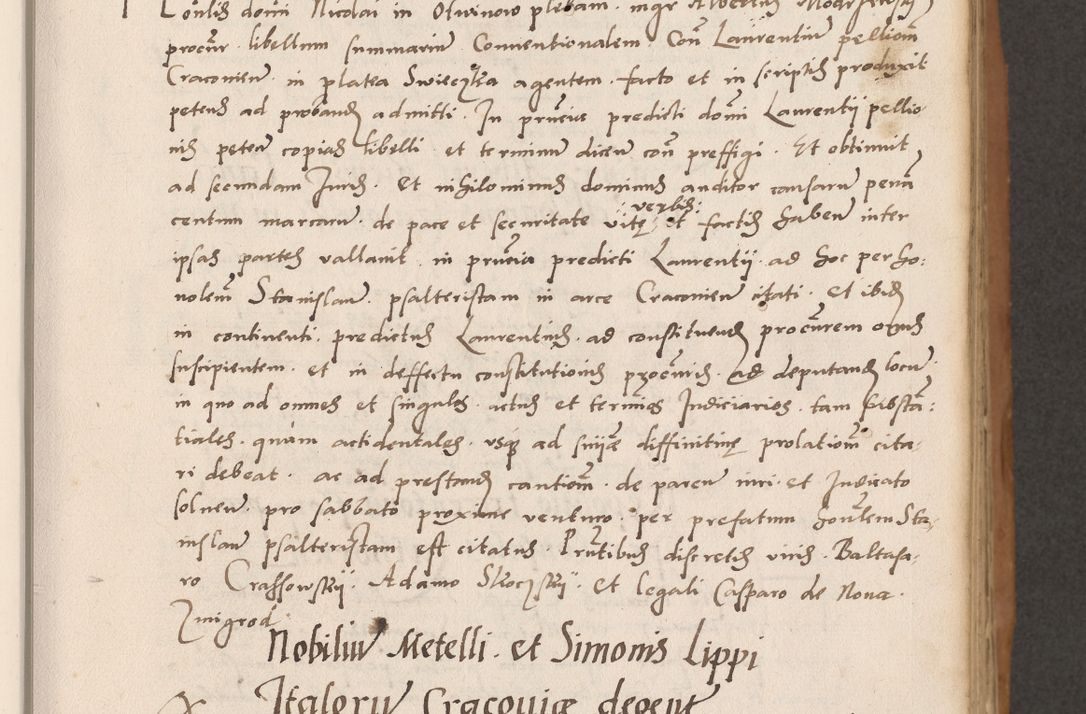 domi Nicolai in Olwinowo plebam. mgr Albertus
procur. libellum summariu Conuentionalem. Con Laurentiu pellione
Cracouien in platea Swieczka agentem. facto et in scriptis produxit
petens ad proband admitti. In pruncia predicti domi Laurentii pellio
nis peten copias libelli et terminum dicen con preffigi. Et obtinuit
ad secundam Juris. Et nihilominus dominus auditor causaru pena
centum marcaru. de pace et securitate vite verbis et factis haben inter
ipsas partes vallauit. in pruncia predicti Laurentii. ad hoc per ho:
nolem Stanislau. psalteristam in arce Cracouien citati. Et ibid
in continenti. predictus Laurentius. ad constituend procurem onus
suscipientem. et in deffectu constitutionis procuris. ad deputand locu.
in quo ad omnes et singulos. actus et terminos Judiciarios. tam substan:
tiales. quam accidentales. vsq ad sniae diffinitiue prolationem cita:
ri debeat. ac ad prestand cautiom. de paren iuri et Judicato
soluen. pro sabbato proxime venturo. per prefatum honlem Sta:
nislau psalteristam est citatus. Prntibus discretis viris. Baltasa:
ro Crassowskii. Adamo Skoczskii. et legali Casparo de Noua.
Zmigrod.
Nobiliu Metelli. et Simonis Lippi
Italoru Cracouiae degent